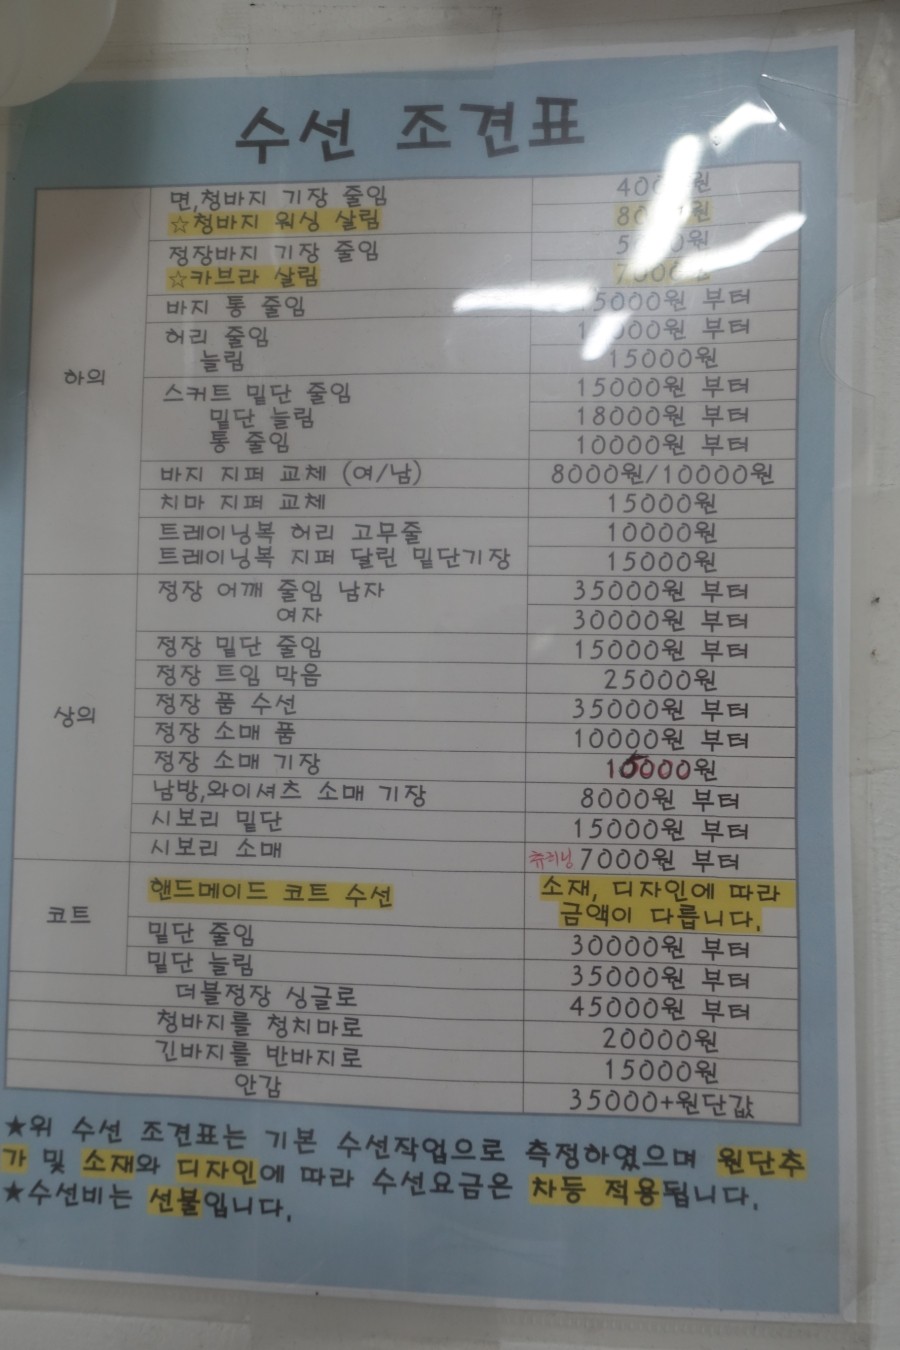 수선 조견표
하의
면,청바지 기장 줄임
☆청바지 워싱 살림
정장바지 기장 줄임
☆카브라 살림 7000원
바지 통 줄임 부터
허리 줄임 부터
늘림 15000원
스커트 밑단 줄임 15000원 부터
밑단 늘림 18000원 부터
통 줄임 10000원 부터
바지 지퍼 교체 (여/남) 8000원/10000원
치마 지퍼 교체 15000원
트레이닝복 허리 고무줄 10000원
트레이닝복 지퍼 달린 밑단기장 15000원
상의
정장 어깨 줄임 남자 35000원 부터
여자 30000원 부터
정장 밑단 줄임 15000원 부터
정장 트임 막음 25000원
정장 품 수선 35000원 부터
정장 소매 품 10000원 부터
정장 소매 기장 15000원
남방,와이셔츠 소매 기장 8000원 부터
시보리 밑단 15000원 부터
시보리 소매 츄리닝 7000원 부터
코트
핸드메이드 코트 수선 소재, 디자인에 따라
금액이 다릅니다.
밑단 줄임 30000원 부터
밑단 늘림 35000원 부터
더블정장 싱글로 45000원 부터
청바지를 청치마로 20000원
긴바지를 반바지로 15000원
안감 35000+원단값
★위 수선 조견표는 기본 수선작업으로 측정하였으며 원단추
가 및 소재와 디자인에 따라 수선요금은 차등 적용됩니다.
★수선비는 선불입니다.